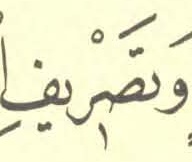 وَتَصْرِيفِ